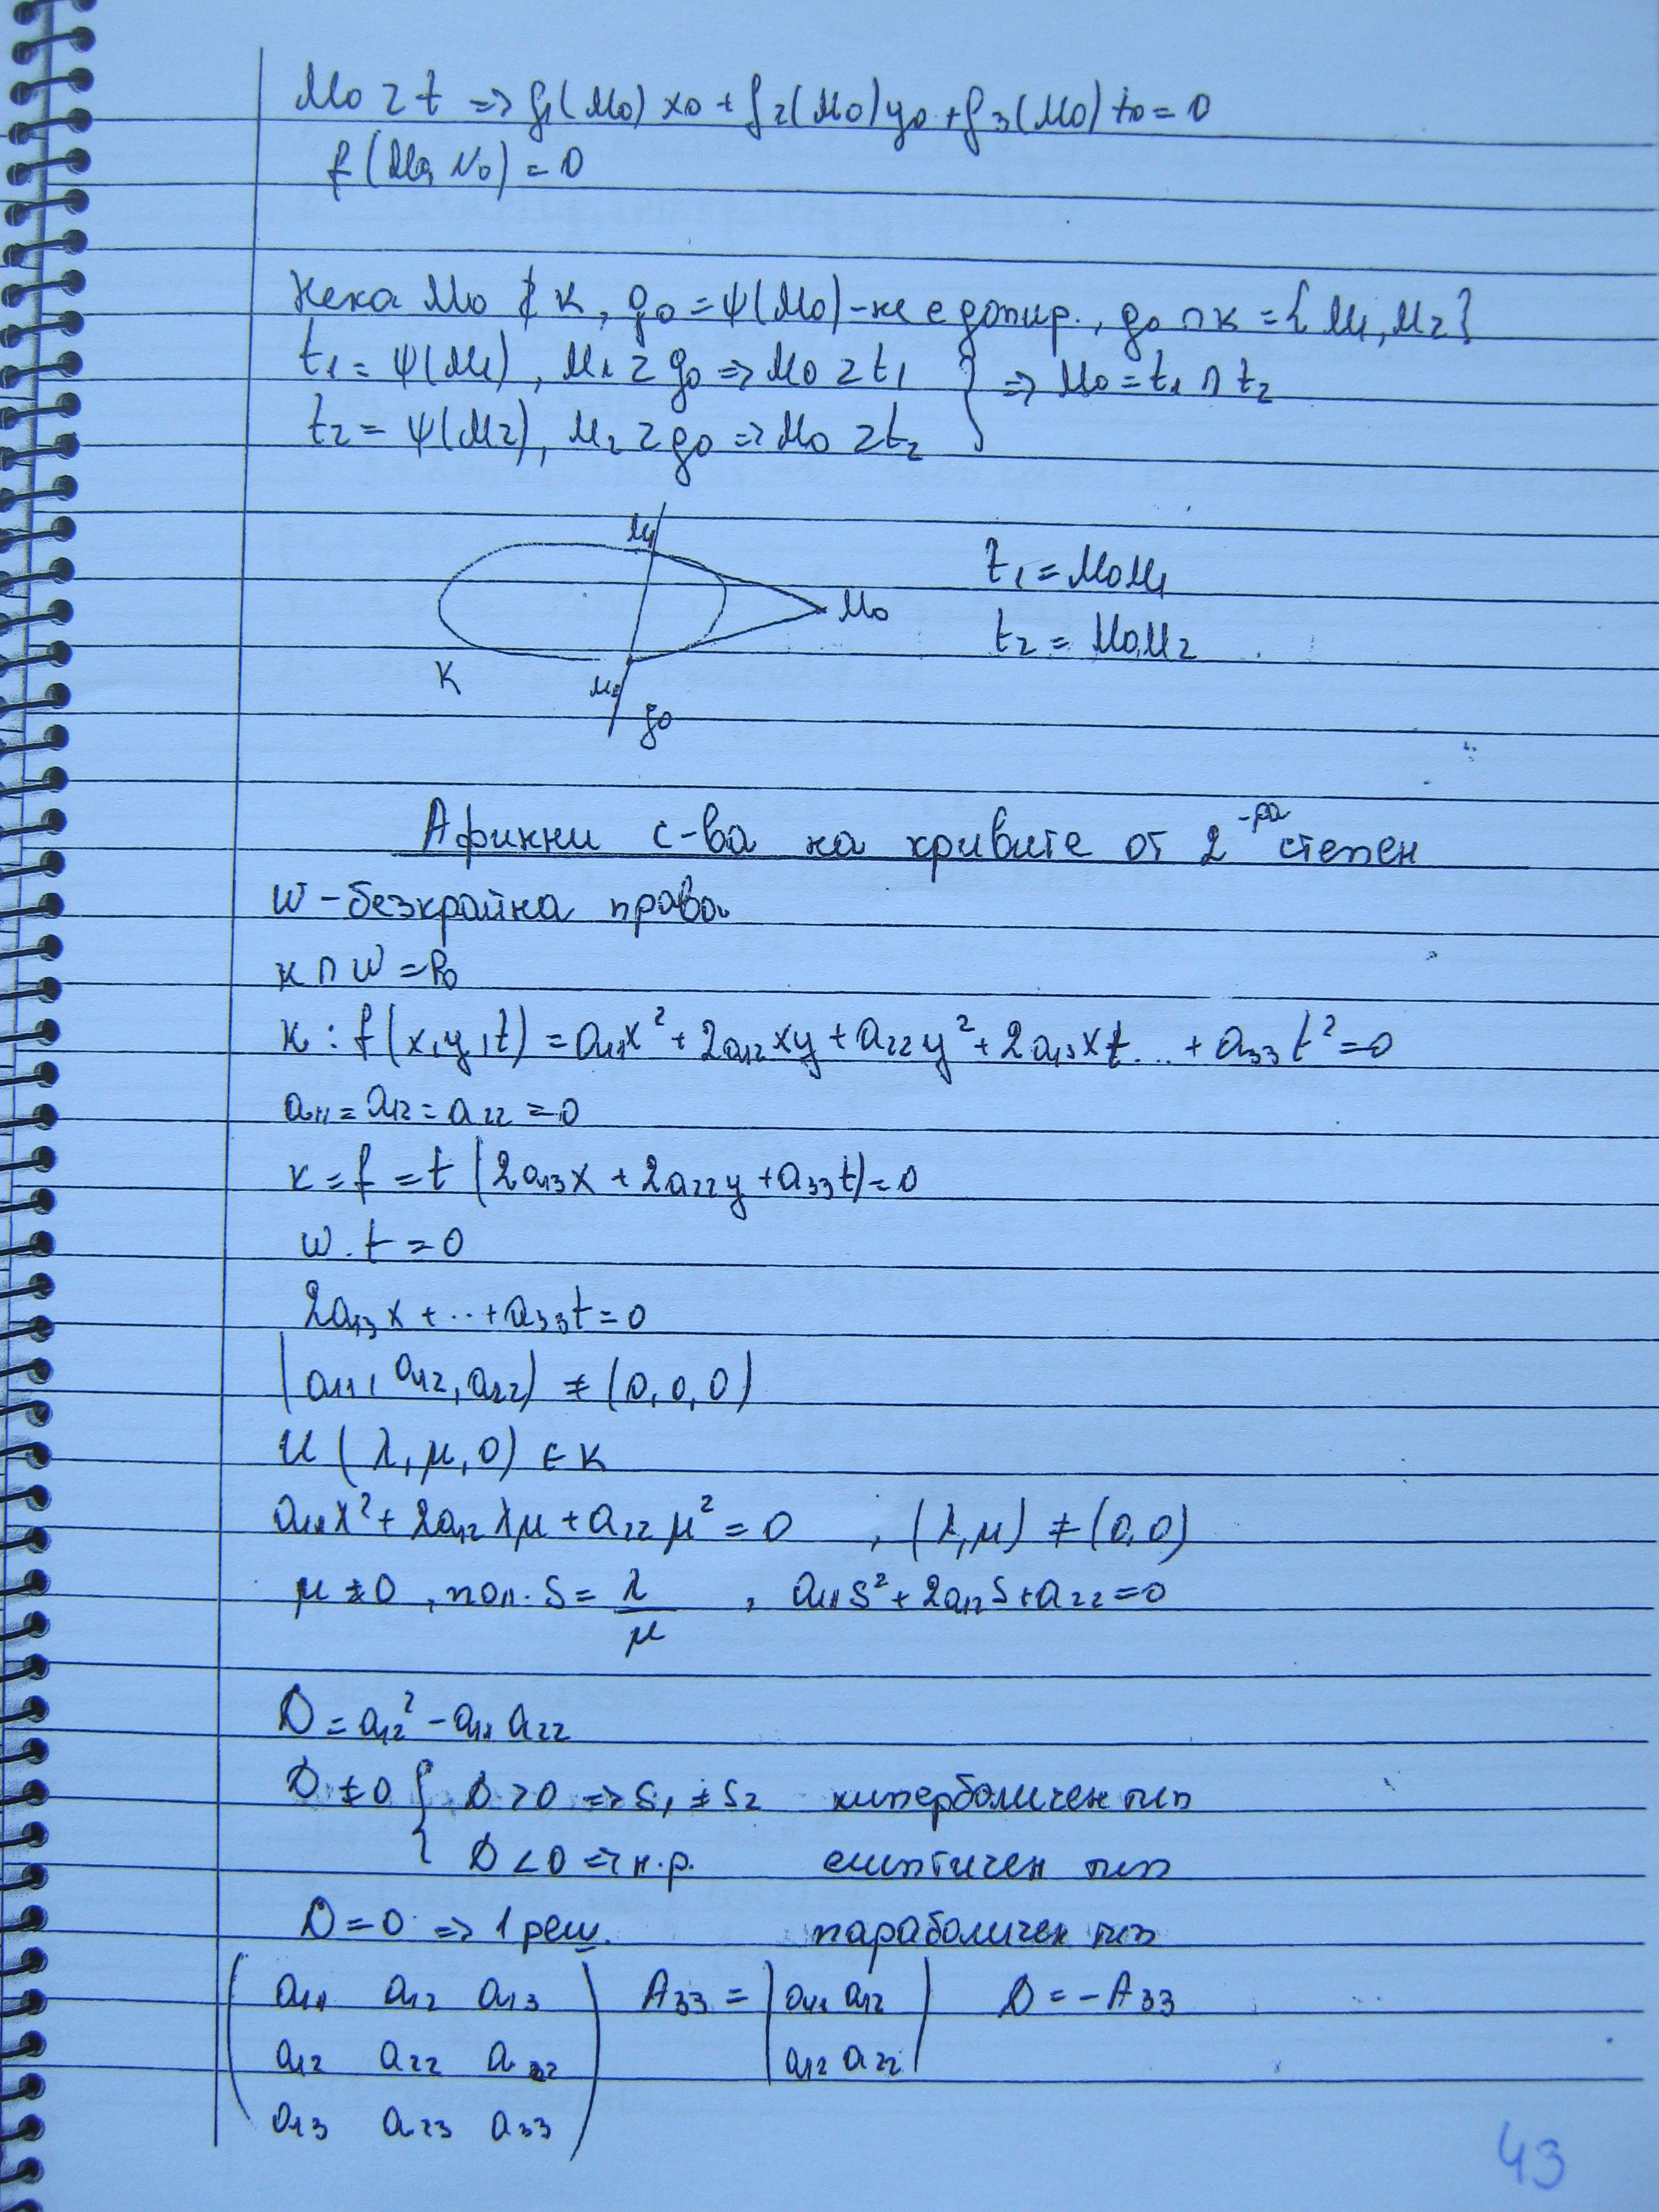 M₀ z t => f₁(M₀) x₀ + f₂(M₀) y₀ + f₃(M₀) t₀ = 0
f(M₀, M₀) = 0
Нека M₀ ∉ K, g₀ = ψ(M₀) - не е допир., g₀ ∩ K = {M₁, M₂}
t₁ = ψ(M₁), M₁ z g₀ => M₀ z t₁ } => M₀ = t₁ ∩ t₂
t₂ = ψ(M₂), M₂ z g₀ => M₀ z t₂
M₁
t₁ = M₀M₁
M₀
t₂ = M₀M₂
K
M₂
g₀
Афинни с-ва на кривите от 2-ра степен
W - безкрайна права
K ∩ W = P₀
K : f(x, y, t) = a₁₁x² + 2a₁₂xy + a₂₂y² + 2a₁₃xt ... + a₃₃t² = 0
a₁₁ = a₁₂ = a₂₂ = 0
K = f = t (2a₁₃x + 2a₂₂y + a₃₃t) = 0
W . t = 0
2a₁₃x + ... + a₃₃t = 0
(a₁₁, a₁₂, a₂₂) ≠ (0, 0, 0)
U (λ, μ, 0) ∈ K
a₁₁λ² + 2a₁₂λμ + a₂₂μ² = 0 , (λ, μ) ≠ (0, 0)
μ ≠ 0 , пол. S = λ/μ , a₁₁S² + 2a₁₂S + a₂₂ = 0
D = a₁₂² - a₁₁a₂₂
D ≠ 0 { D > 0 => S₁ ≠ S₂ хиперболичен тип
D < 0 => н.р. елиптичен тип
D = 0 => 1 реш. параболичен тип
( a₁₁ a₁₂ a₁₃ ) A₃₃ = | a₁₁ a₁₂ | D = -A₃₃
a₁₂ a₂₂ a₃₂ | a₁₂ a₂₂ |
a₁₃ a₂₃ a₃₃
43